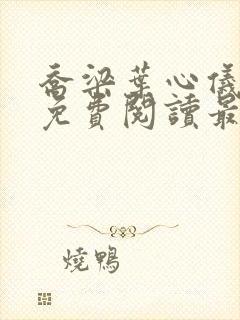 喬梁葉心儀
免費閱讀最
燒鴨